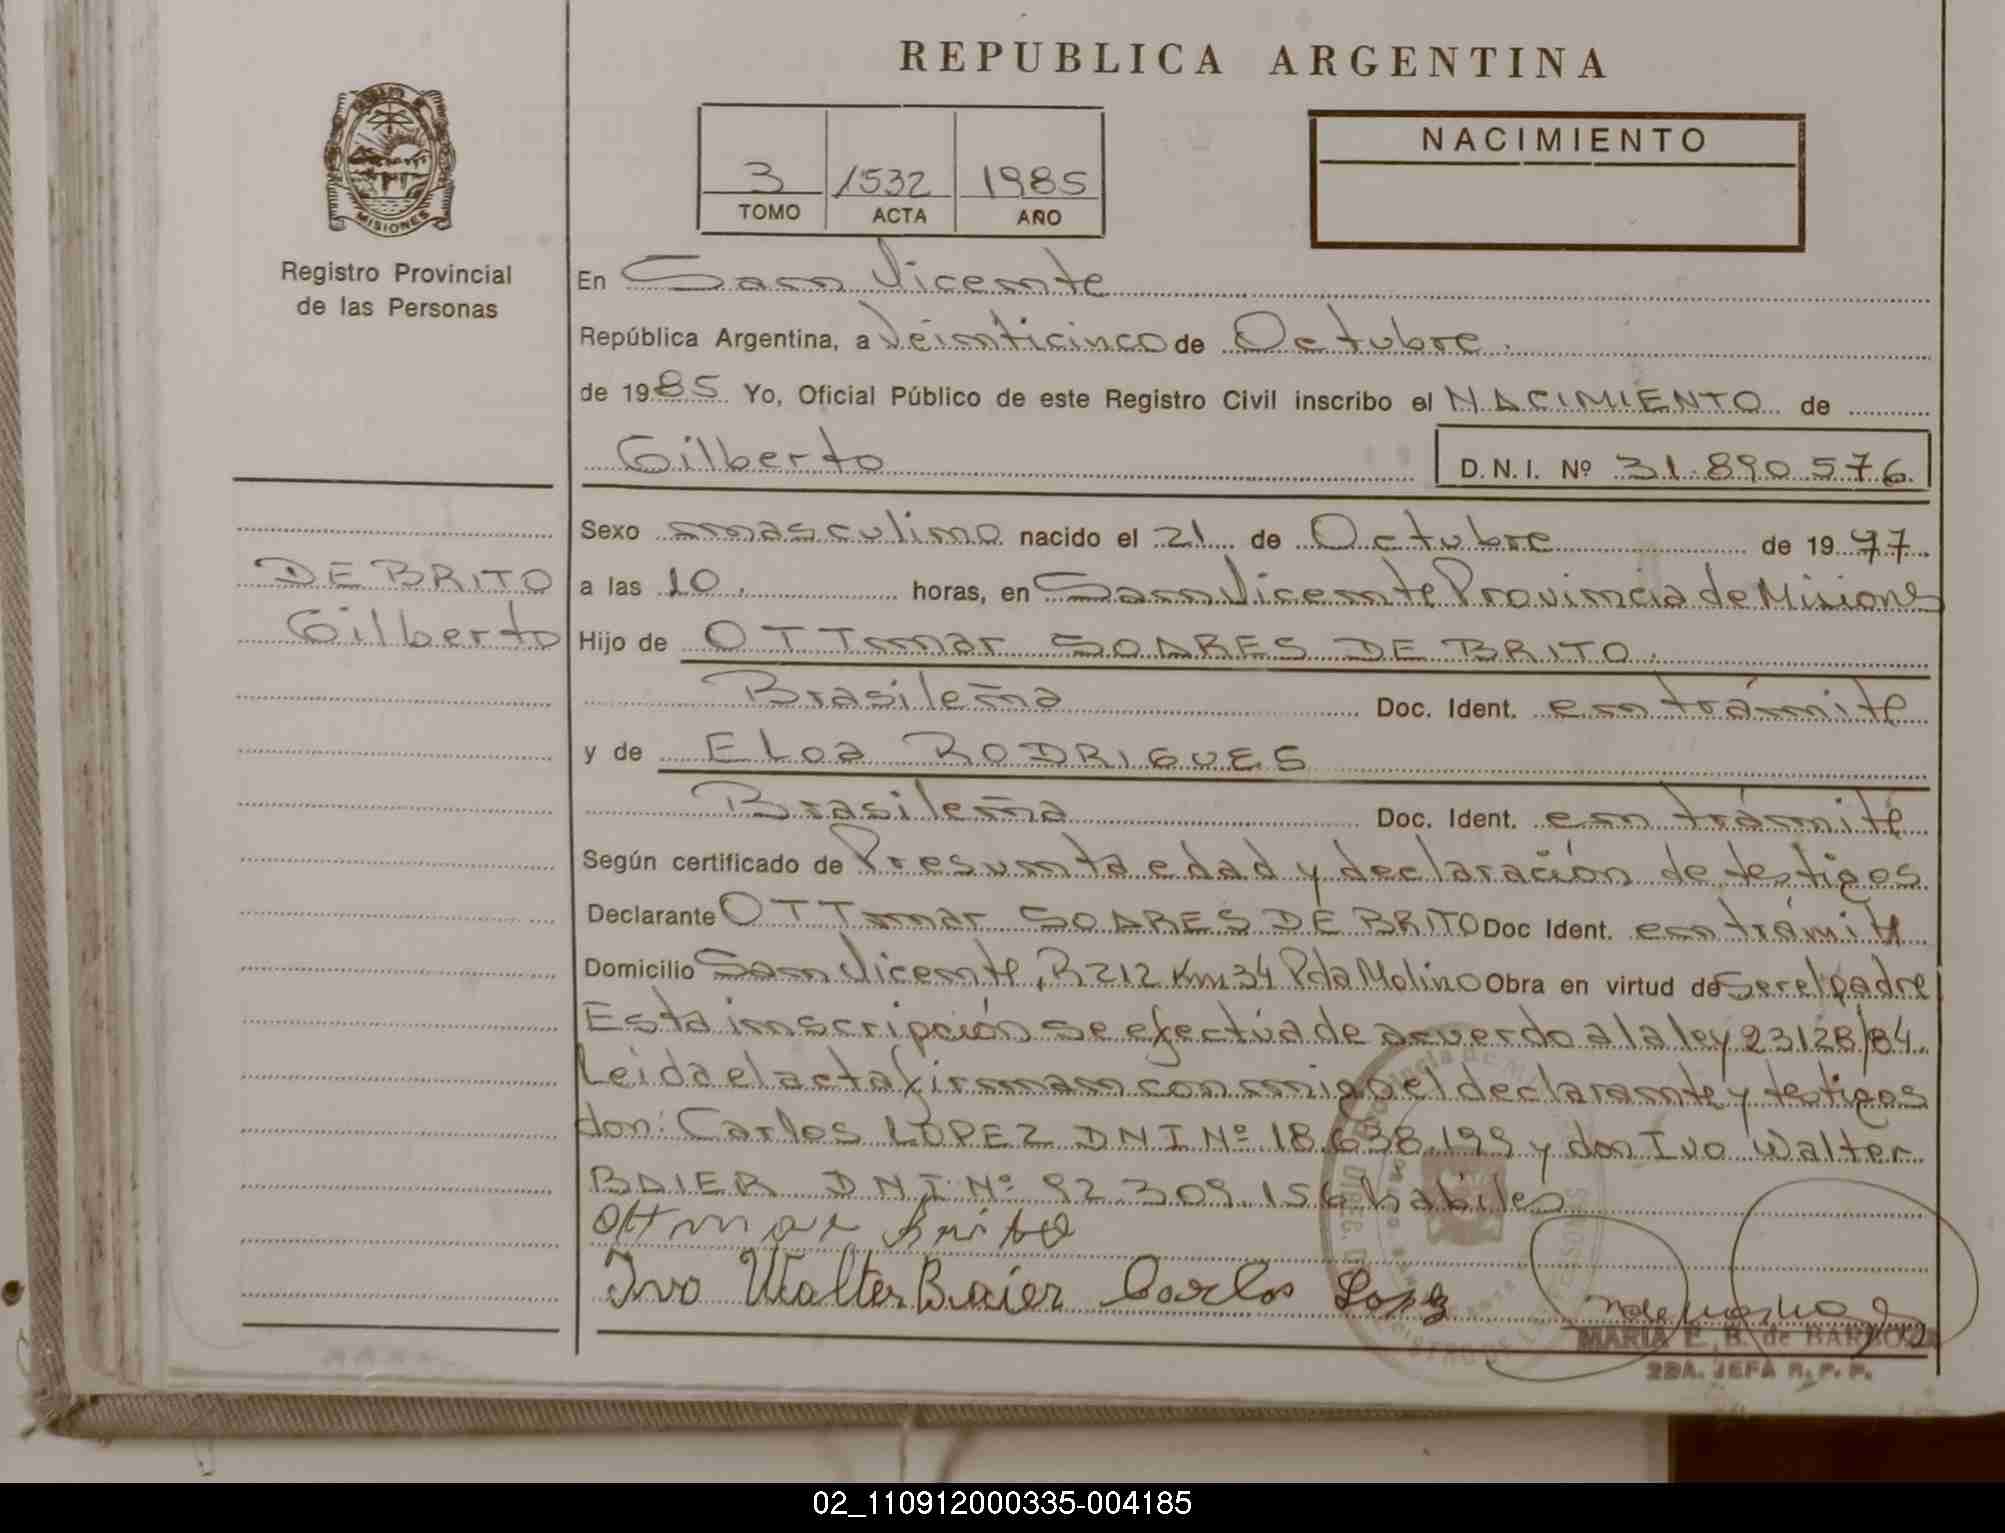 REPUBLICA ARGENTINA
MISIONES
Registro Provincial
de las Personas
3 1532 1985
TOMO ACTA AÑO
NACIMIENTO
En San Vicente
República Argentina, a Veinticinco de Octubre.
de 1985 Yo, Oficial Público de este Registro Civil inscribo el NACIMIENTO de
Gilberto D.N.I. Nº 31.890.576
DE BRITO
Gilberto
Sexo masculino nacido el 21 de Octubre de 1977
a las 10. horas, en San Vicente Provincia de Misiones
Hijo de OTTmar SOARES DE BRITO.
Brasileña Doc. Ident. en trámite
y de ELOa RODRIGUES
Brasileña Doc. Ident. en trámite
Según certificado de Presunta edad y declaración de testigos
Declarante OTTmar SOARES DE BRITO Doc Ident. en trámite
Domicilio San Vicente, R 212 Km 34 Pda Molino Obra en virtud de Ser el padre
Esta inscripción se efectúa de acuerdo a la ley 23128/84.
Leida el acta firman conmigo el declarante y testigos
don: Carlos LOPEZ DNI Nº 18.638.199 y don Ivo Walter
BAIER DNI Nº 92.309.156 habiles
Ottmar Brito
Ivo Walter Baier Carlos Lopez
MARIA E. B. de BARBOZA
2DA. JEFA R. P. P.
02_110912000335-004185